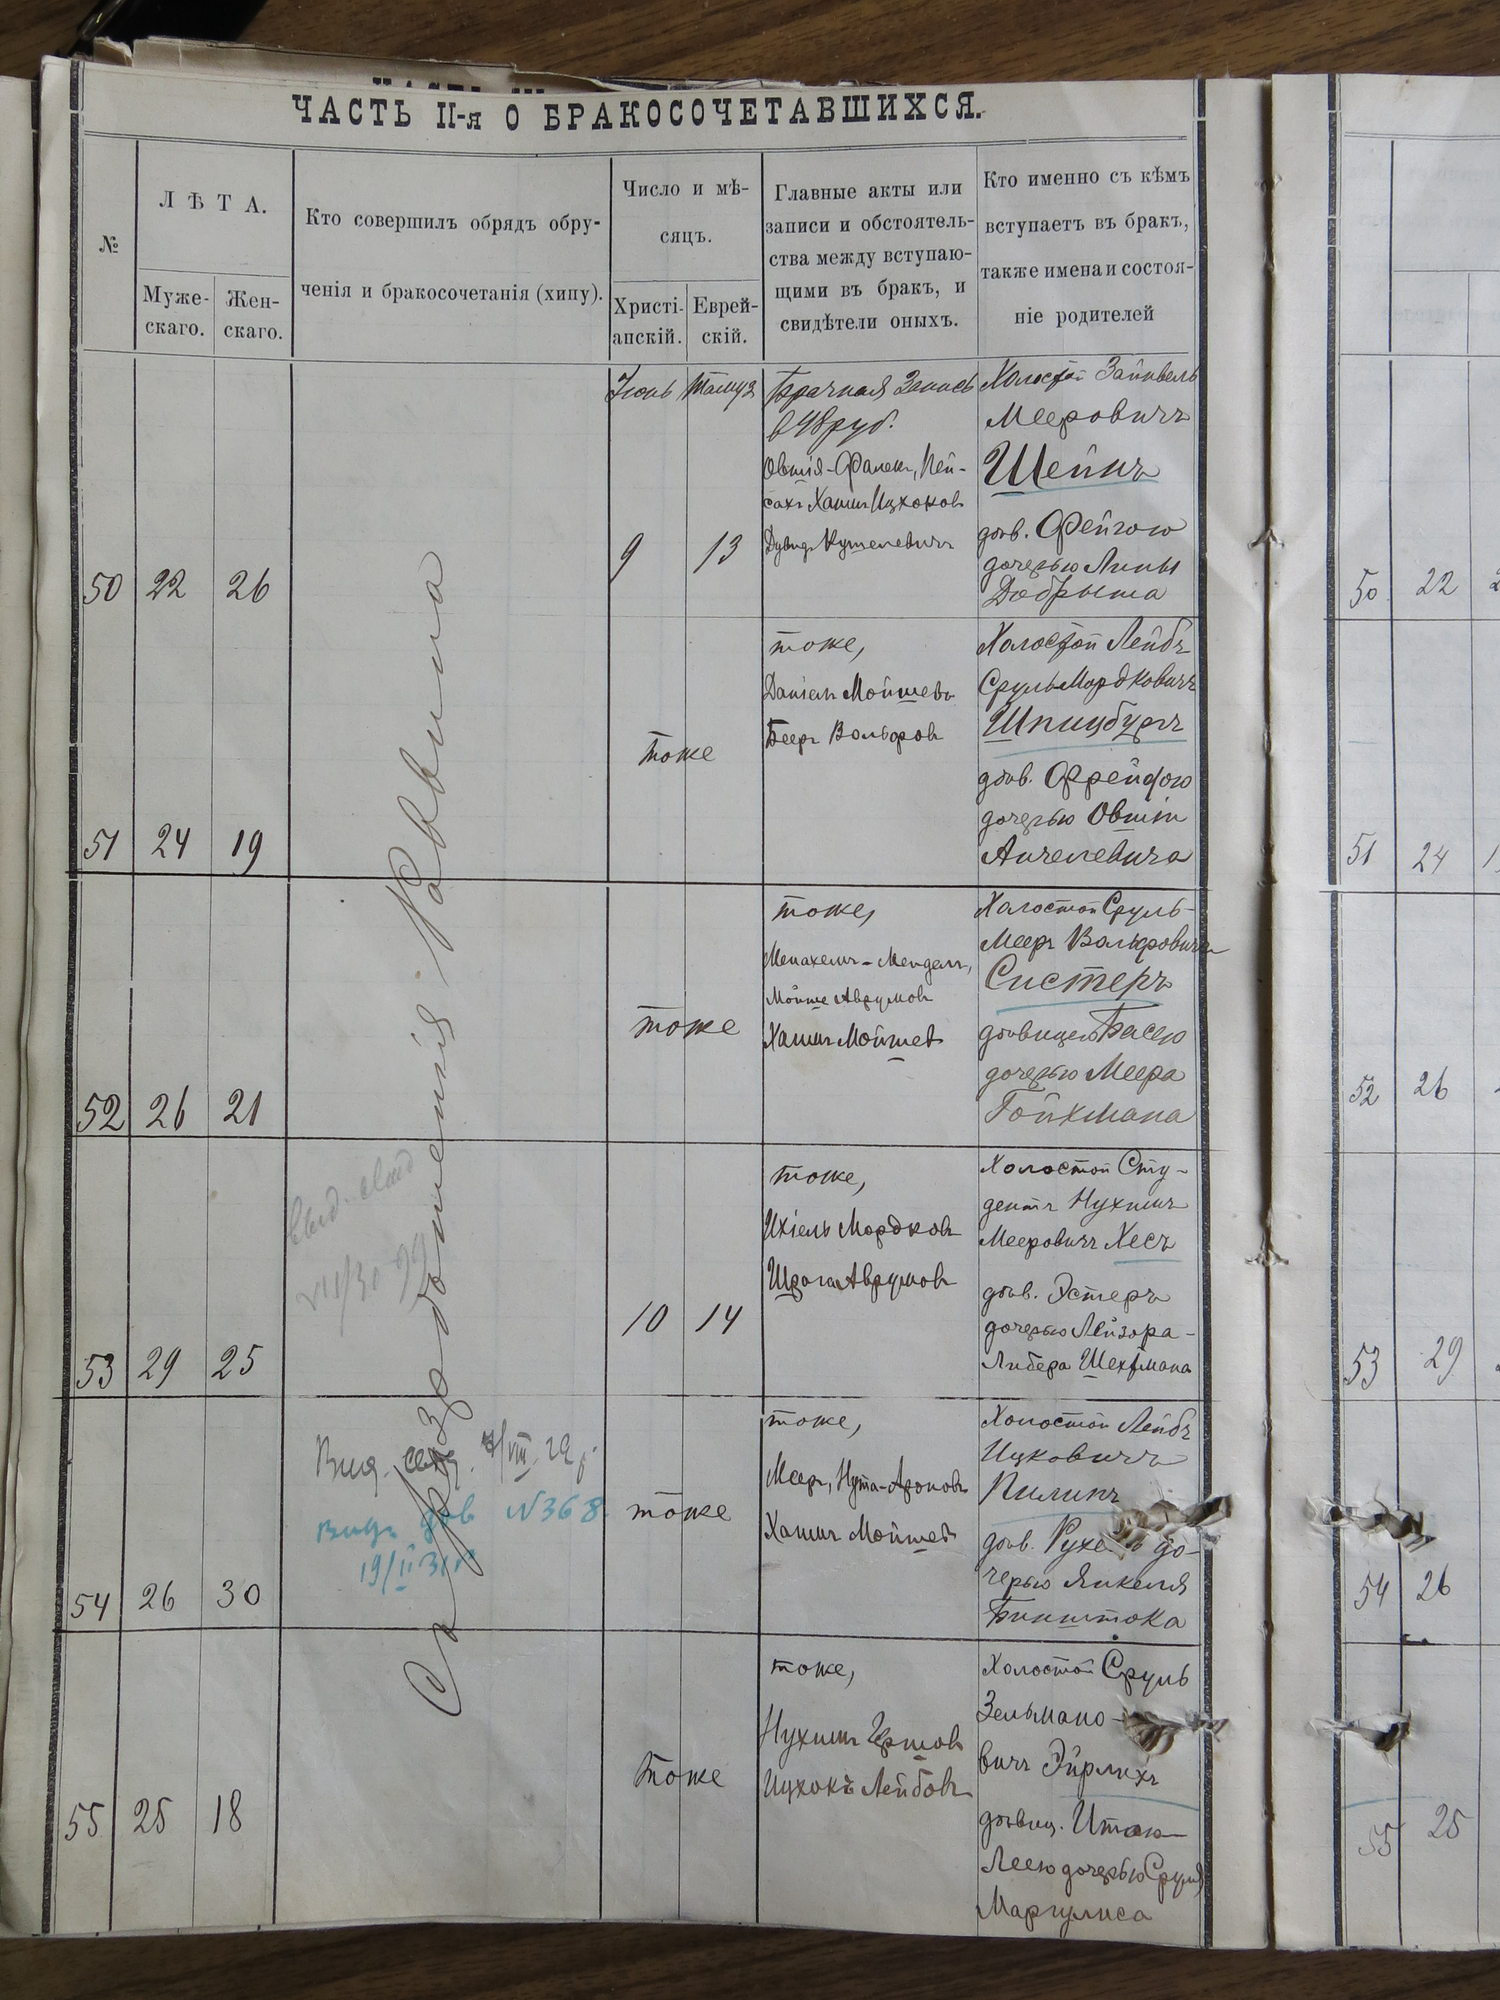 ЧАСТЬ II-я О БРАКОСОЧЕТАВШИХСЯ.
№
ЛѢТА.
Муже-
скаго.
Жен-
скаго.
Кто совершилъ обрядъ обру-
ченія и бракосочетанія (хипу).
Число и мѣ-
сяцъ.
Христі-
анскій.
Еврей-
скій.
Главные акты или
записи и обстоятель-
ства между вступаю-
щими въ бракъ, и
свидѣтели оныхъ.
Кто именно съ кѣмъ
вступаетъ въ бракъ,
также имена и состоя-
ніе родителей
Съ дозволенія Раввина
50
22
26
Іюнь
Тамуз
9
13
Брачная Запись
в 48 руб.
Овшія-Фалекъ, Пей-
сахъ Хаимъ Ицхоковъ
Дувидъ Кушелевичъ
Холостой Зайнвель
Мееровичъ
Шейнъ
дѣв. Фейгою
дочерью Липы
Добрыша
51
24
19
тоже
тоже,
Даніель Мойшевъ
Бееръ Вольфовъ
Холостой Лейбъ
Сруль Мордковичъ
Шпицбургъ
дѣв. Фрейдою
дочерью Овшіи
Анчелевича
52
26
21
тоже
тоже,
Менахемъ-Мендель,
Мойше Аврумовъ
Хаимъ Мойшев
Холостой Сруль-
Мееръ Вольфовичъ
Систеръ
дѣвицею Басею
дочерью Меера
Гойхмана
53
29
25
VIII/30
10
14
тоже,
Ихіель Мордковъ
Шрага Аврумовъ
Холостой Сту-
дентъ Нухимъ
Мееровичъ Хесъ
дѣв. Эстеръ
дочерью Лейзора-
Либера Шехтмана
54
26
30
Вид.
N 368
19/II 31
тоже
тоже,
Мееръ, Нута-Ароновъ
Хаимъ Мойшев
Холостой Лейбъ
Ицковичъ
Пилипъ
дѣв. до-
черью Янкеля
Бинштока
55
25
18
тоже
тоже,
Нухимъ Гершовъ
Ицхокъ Лейбовъ
Холостой Сруль
Зельмано-
вичъ Эйрлихъ
дѣвиц. Итою
Леею дочерью Сруля
Маргулиса
50
22
51
24
52
26
53
29
54
26
55
25